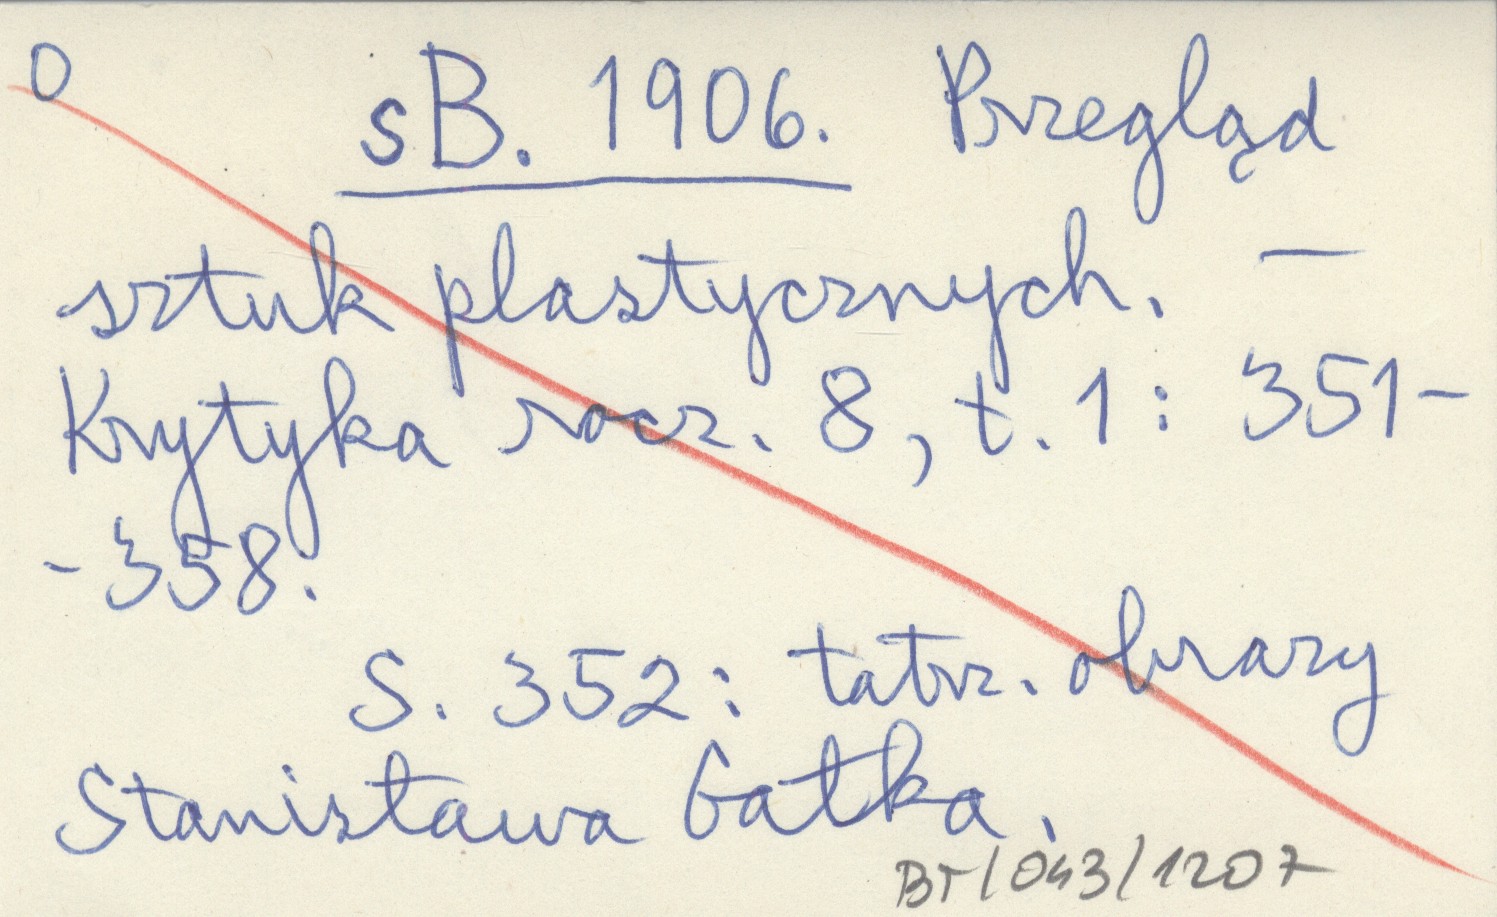 0
sB. 1906. Przegląd
sztuk plastycznych. —
Krytyka rocz. 8, t. 1: 351-
-358.
S. 352: tatrz. obrazy
Stanisława Gałka.
BT/043/1207